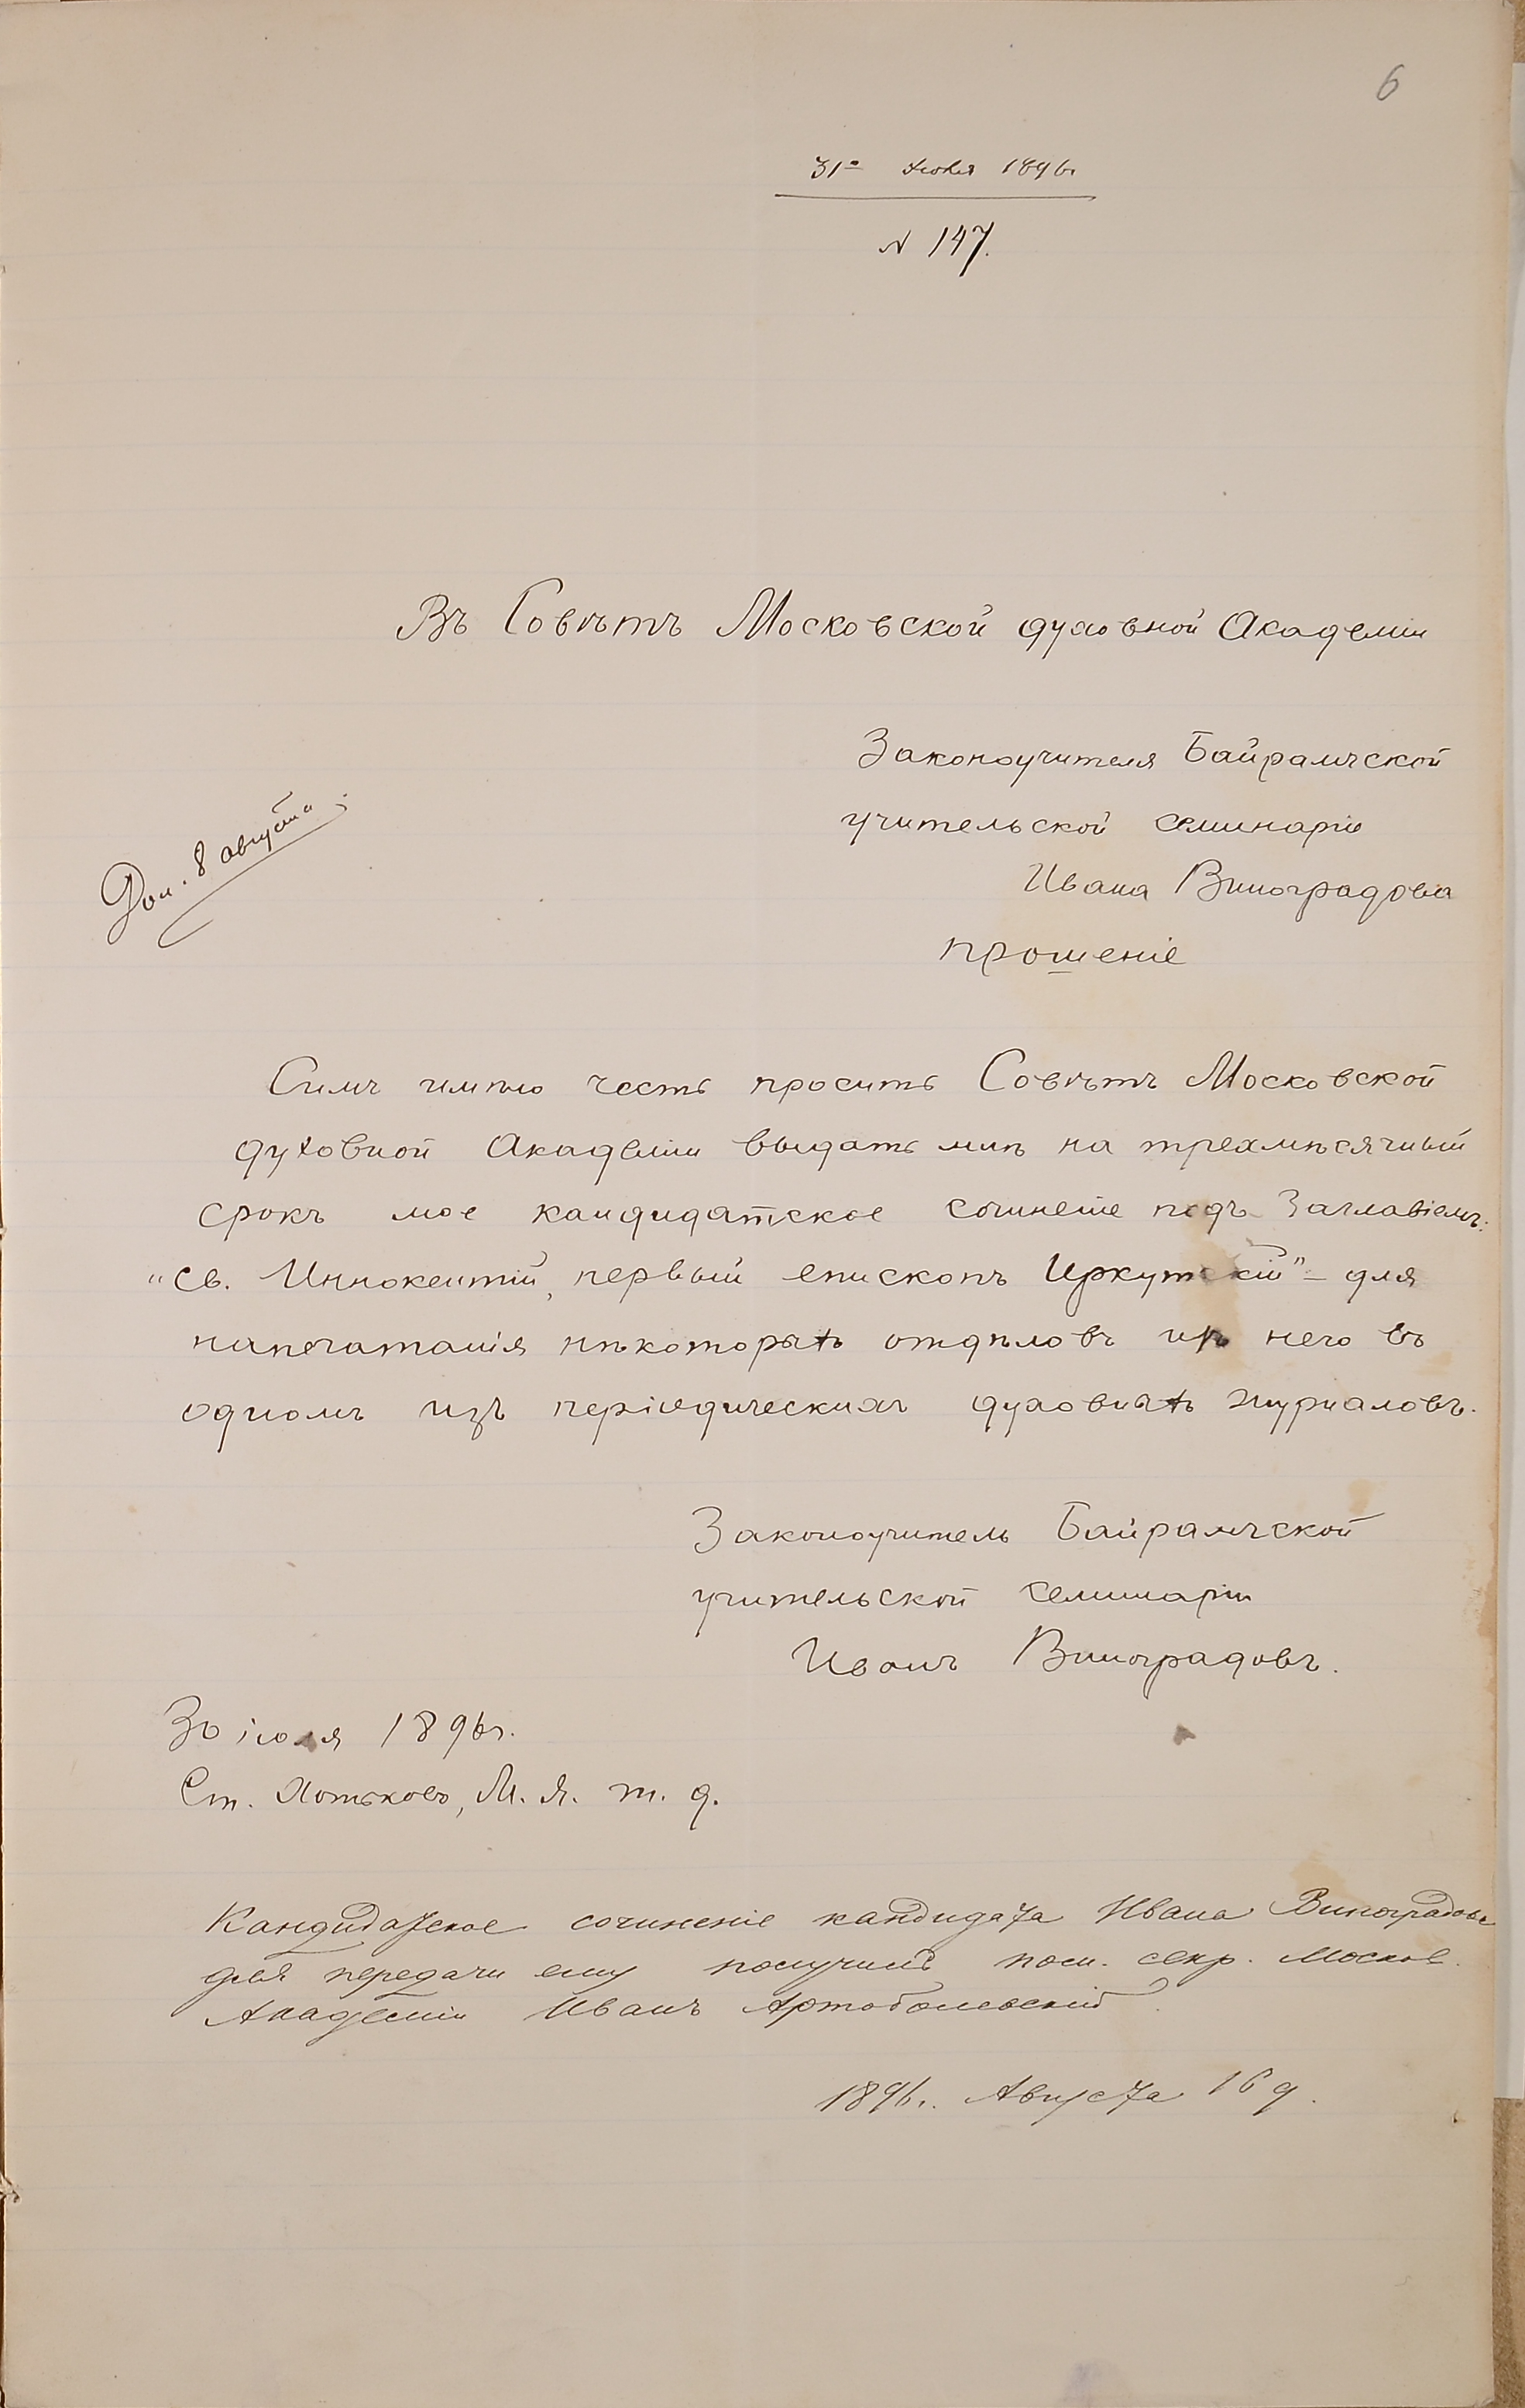 6
31го Июля 1896г.
№ 147.
Въ Совѣтъ Московской духовной Академіи
Законоучителя Байрамчской
учительской семинаріи
Ивана Виноградова
прошеніе
Дол. 8 августа
Симъ имѣю честь просить Совѣтъ Московской
духовной Академіи выдать мнѣ на трехмѣсячный
срокъ мое кандидатское сочиненіе подъ заглавіемъ:
"Св. Иннокентій, первый епископъ Иркутскій" – для
напечатанія нѣкоторыхъ отдѣловъ изъ него въ
одномъ изъ періодическихъ духовныхъ журналовъ.
Законоучитель Байрамчской
учительской семинаріи
Иванъ Виноградовъ.
30 іюля 1896г.
Ст. Хотьково, М. Я. ж. д.
Кандидатское сочиненіе кандидата Ивана Виноградова
для передачи ему получилъ пом. секр. Москов.
Академіи Иванъ Артоболевскій.
1896г. Августа 16 д.